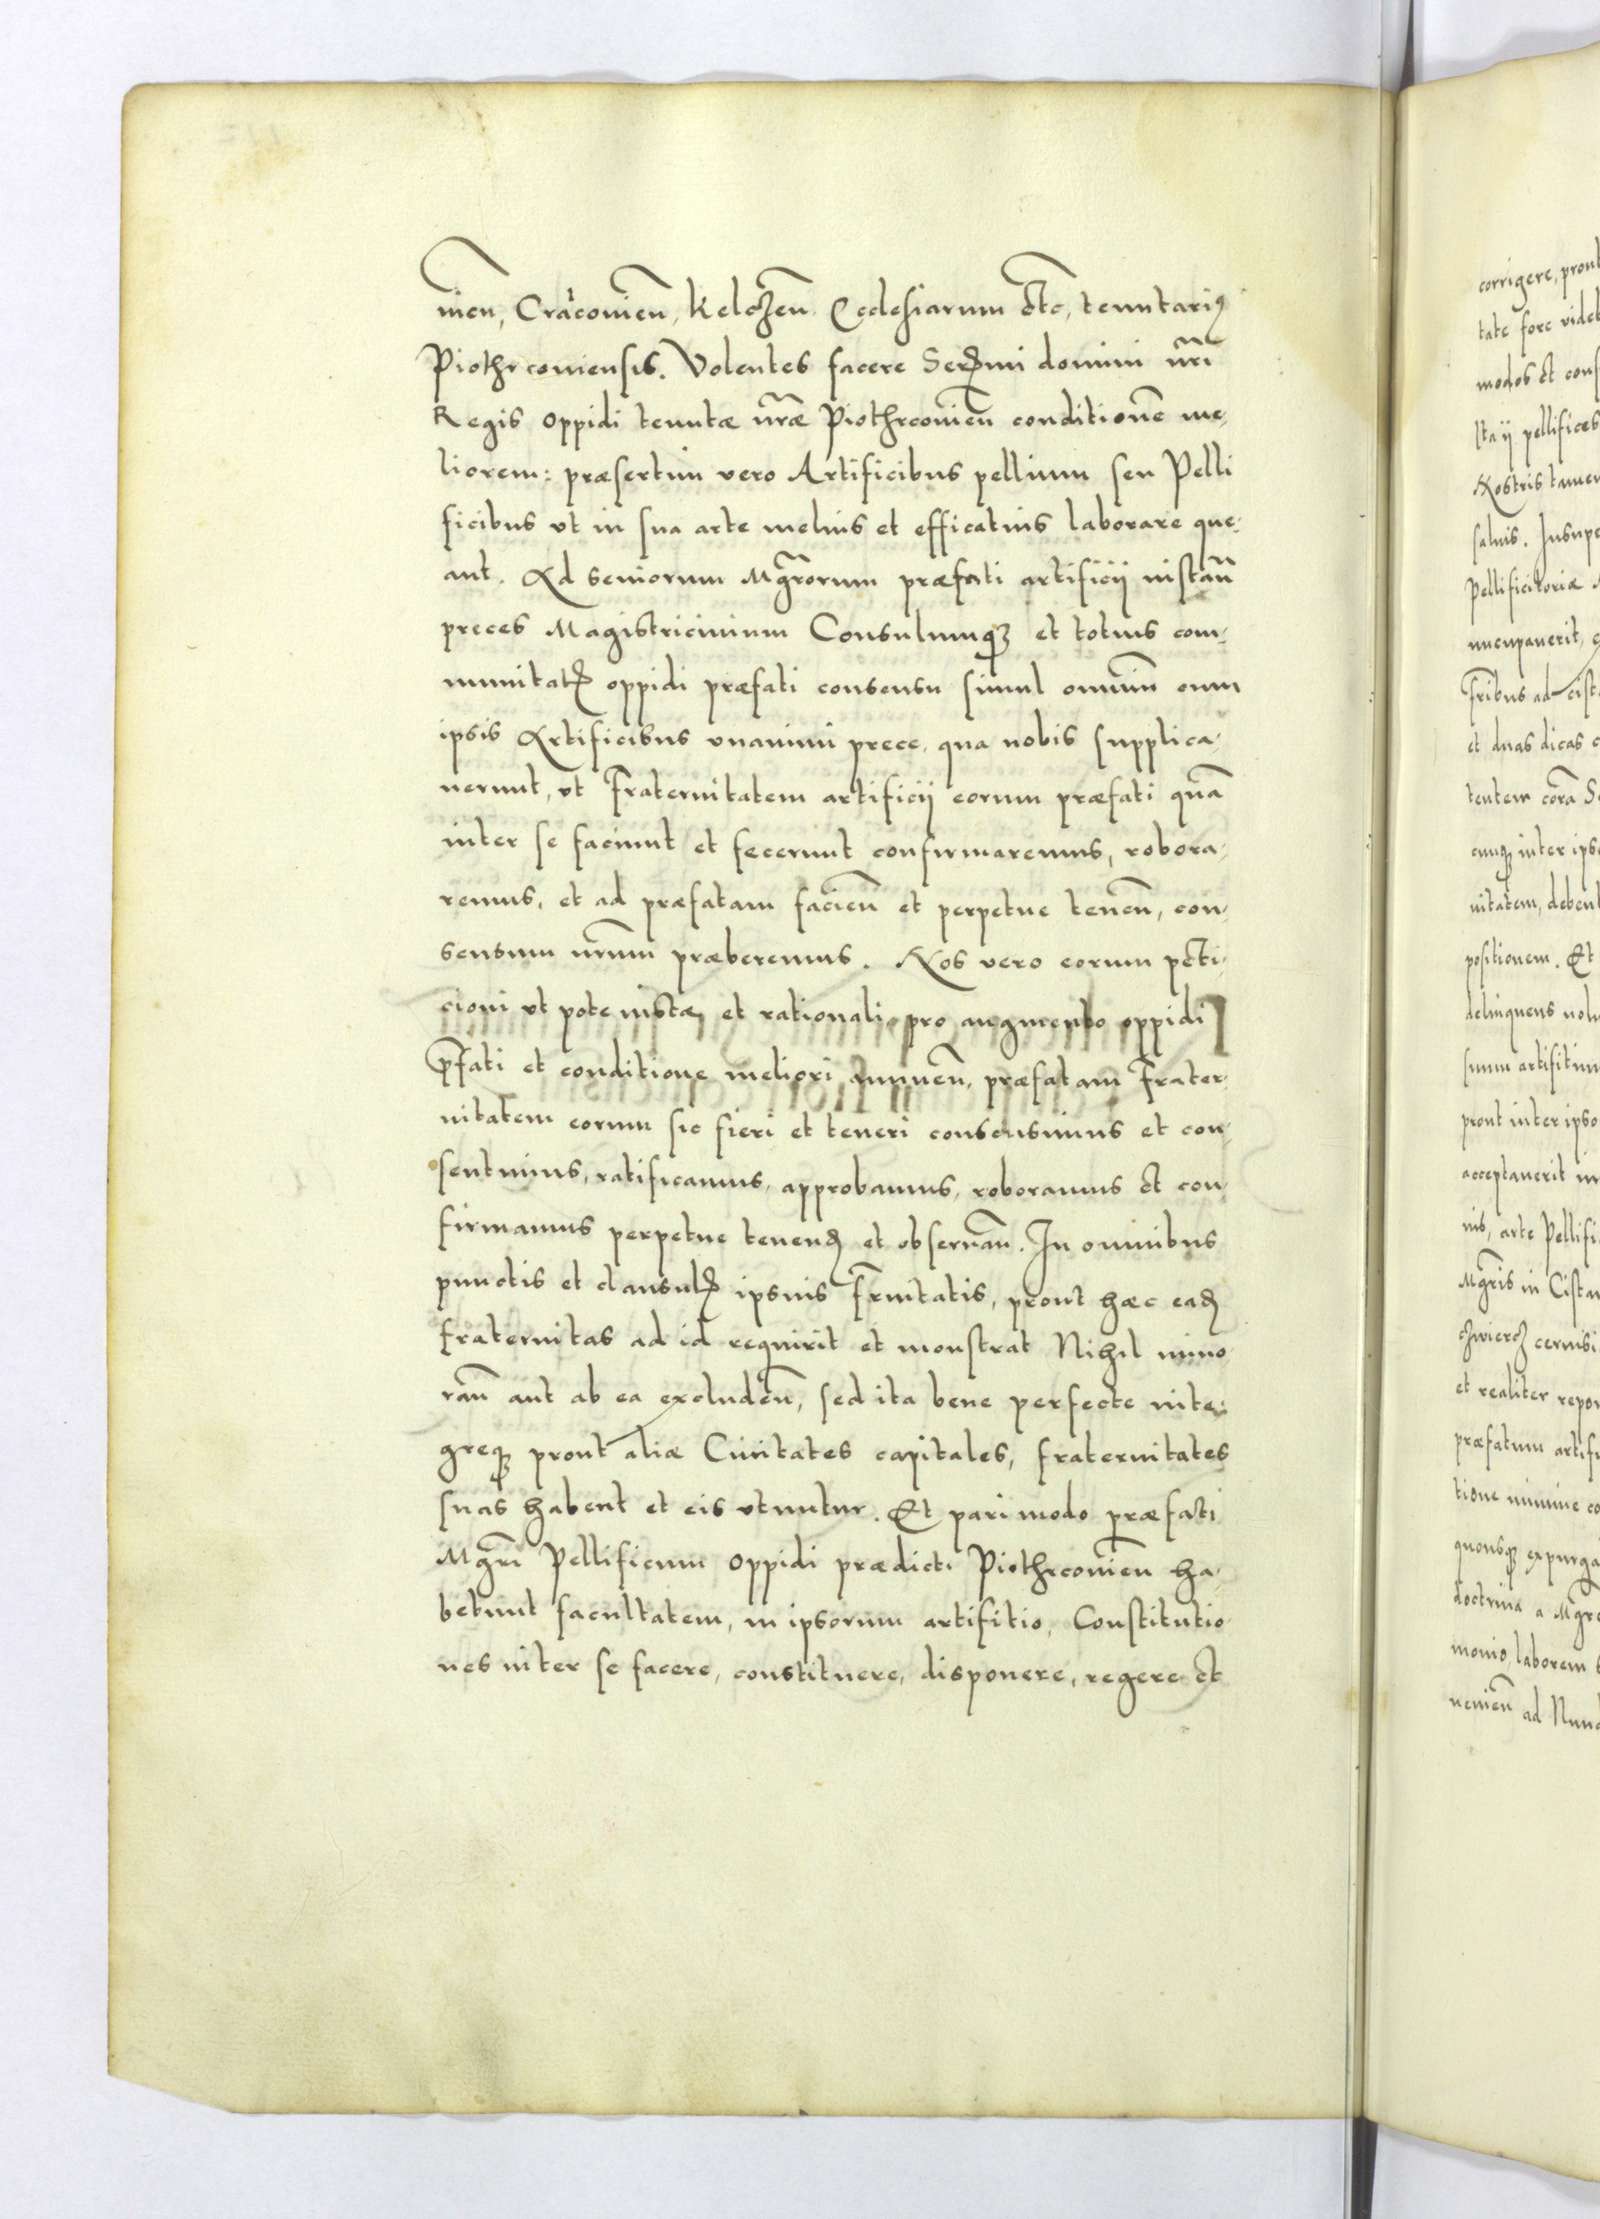 nien, Cracovien, Kelczen Ecclesiarum etc, tenutarius
Piothrcoviensis. Volentes facere Serenmi domini nri
Regis oppidi tenutæ nræ Piothrcovien conditione me-
liorem: præsertim vero Artificibus pellium seu Pelli
ficibus ut in sua arte melius et efficatius laborare que-
ant. Ad seniorum Mgrorum præfati artificii instan
preces Magistricivium Consulumq et totius com-
munitatis oppidi præfati consensu simul omnium cum
ipsis Artificibus unanimi prece, qua nobis supplica-
uerunt, ut Fraternitatem artificii eorum præfati qua
inter se faciunt et fecerunt confirmaremus, robora-
remus, et ad præfatam facien et perpetue tenen, con-
sensum nrum præberemus. Nos vero eorum peti-
cioni ut pote iustæ, et rationali, pro augmento oppidi
pfati et conditione meliori annuen, præfatam Frater-
nitatem eorum sic fieri et teneri consensimus et con-
sentimus, ratificamus, approbamus, roboramus et con-
firmamus perpetue tenend et observan. In omnibus
punctis et clausulis ipsius Frnitatis, prout hæc ead
fraternitas ad id requirit et monstrat Nihil mino-
ran aut ab ea excluden, sed ita bene perfecte inte-
greq prout aliæ Civitates capitales, fraternitates
suas habent et eis utuntur. Et pari modo præfati
Mgri Pellificum oppidi prædicti Piothrcovien ha-
bebunt facultatem, in ipsorum artifitio, Constitutio-
nes inter se facere, constituere, disponere, regere et
corrigere, prout
tate fore videb
modos et cons
sta ii pellifices
Nostris tamen
salvis. Insupe
Pellificitoriæ
nuncupaverit,
Fribus ad cist
et duas dicas
tentem cora
cunq inter ips
nitatem, debent
positionem. Et
delinquens
suum artifitium
prout inter ipso
acceptaverit in
nis, arte Pellifi
Mgris in Cista
cervisi
et realiter repon
præfatum artifi
tione minime co
quousq expurga
doctrina a Mgro
monio, laborem
venien ad Nund